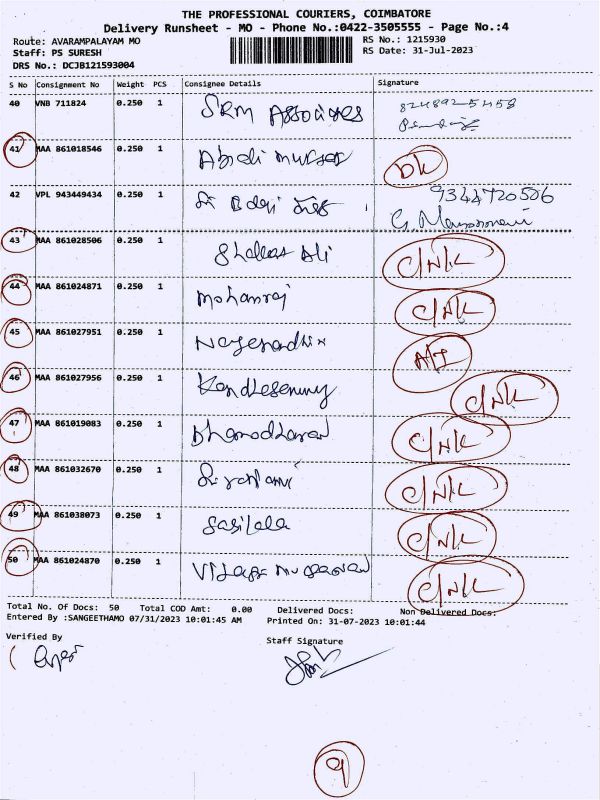 THE PROFESSIONAL COURIERS, COIMBATORE
Delivery Runsheet - MO - Phone No.:0422-3505555 - Page No.:4
Route: AVARAMPALAYAM MO RS No.: 1215930
Staff: PS SURESH RS Date: 31-Jul-2023
DRS No.: DCJB121593004
S No Consignment No Weight PCS Consignee Details Signature
40 VNB 711824 0.250 1 SRM Associates
41 MAA 861018546 0.250 1 DK
42 VPL 943449434 0.250 1 9344720506
43 MAA 861028506 0.250 1 Ali C/NK
44 MAA 861024871 0.250 1 Mohanraj C/NK
45 MAA 861027951 0.250 1
46 MAA 861027956 0.250 1 C/NK
47 MAA 861019083 0.250 1 C/NK
48 MAA 861032670 0.250 1 C/NK
49 MAA 861038073 0.250 1 Sasilala C/NK
50 MAA 861024870 0.250 1 C/NK
Total No. Of Docs: 50 Total COD Amt: 0.00 Delivered Docs: Non Delivered Docs:
Entered By :SANGEETHAMO 07/31/2023 10:01:45 AM Printed On: 31-07-2023 10:01:44
Verified By Staff Signature
9